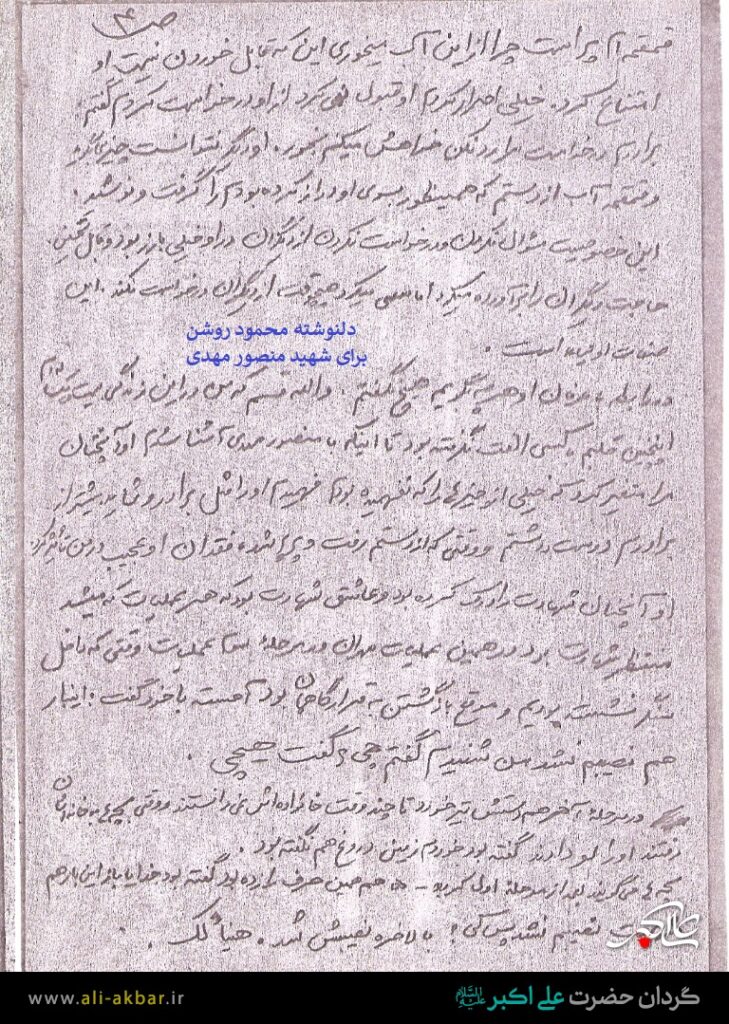 ص ۴
قمقمه ام پر است چرا از این آب میخوری این که قابل خوردن نیست او
امتناع کرد. خیلی اصرار کردم او قبول نمی کرد از او درخواست کردم گفتم
برادرم درخواست مرا رد نکن خواهش میکنم بخور. او دیگر نتوانست چیزی بگوید
و قمقمه آب از دستم که همینطور بسوی او دراز کرده بودم را گرفت و نوشید.
این خصوصیت سؤال نکردن و درخواست نکردن از دیگران در او خیلی بارز بود و قابل تحسین
حاجت دیگران را برآورده میکرد اما سعی میکرد هیچوقت از دیگران درخواست نکند. این
صفات اولیاء است.
دلنوشته محمود روشن
برای شهید منصور مهدی
در رابطه با او هر چه بگویم هیچ نگفتم. والله قسم که من در این زندگی
اینچنین قلبم با کسی الفت نگرفته بود تا اینکه با منصور مهدی آشنا شدم او آنچنان
مرا متغیر کرد که خیلی از چیزهایی را که نفهمیده بودم فهمیدم او را مثل برادر و شاید بیشتر از
برادرم دوست داشتم و وقتی که از دستم رفت و فقدان او عجیب در من تأثیر کرد
او آنچنان شهادت را درک کرده بود و عاشق شهادت بود که هر عملیات که میشد
منتظر شهادت بود در همین عملیات مهران و در مرحلهٔ عملیات وقتی که داخل
نشسته بودیم و موقع بازگشتن به قرارگاهمان بود آهسته با خود گفت: اینبار
هم نصیبم نشد من شنیدم گفتم چی؟ گفت هیچی.
در مرحلهٔ آخر هم دستش تیر خورد تا چند وقت خانواده اش نمی دانستند و وقتی بچه ها به خانه شان
رفتند او را لو دادند گفته بود خوردم زمین دروغ هم نگفته بود.
بچه ها می گویند بعد از مرحلهٔ اول کربلا - ۵ هم همین حرف را زده بود گفته بود خدایا باز این بار هم
نصیبم نشد پس کی؟ بالاخره نصیبش شد. هنیأً لک.
علی اکبر
www.ali-akbar.ir
گردان حضرت علی اکبر علیه السلام